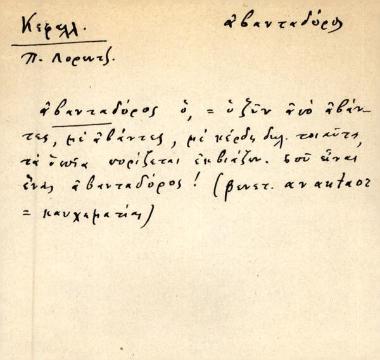 Κεφαλλ. ἀβανταδόρος
Π. Λορεντζ.
ἀβανταδόρος ὁ, = ὁ ζῶν ἀπὸ ἀβάν-
τες, μὲ ἀβάντες, μὲ κέρδη δηλ. τοιαῦτα,
τὰ ὁποῖα πορίζεται ἐκβιάζων. Σοῦ εἶναι
ἕνας ἀβανταδόρος! (βενετ.
= καυχηματίας)